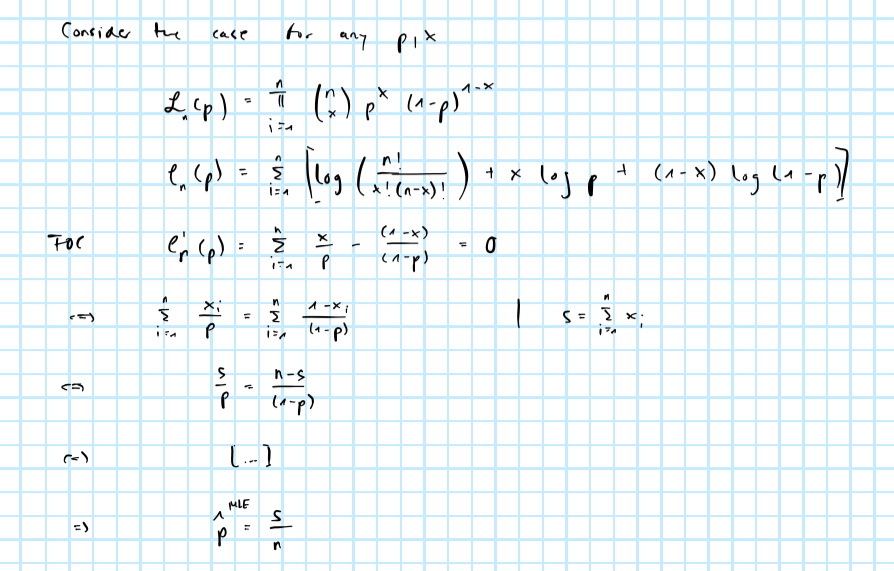 Consider the case for any p, x
𝓛ₙ(p) = ∏_{i=1}^{n} (n choose x) p^x (1-p)^{1-x}
ℓₙ(p) = Σ_{i=1}^{n} [log (n!/(x!(n-x)!)) + x log p + (1-x) log (1-p)]
FOC ℓₙ'(p) = Σ_{i=1}^{n} x/p - (1-x)/(1-p) = 0
<=> Σ_{i=1}^{n} x_i/p = Σ_{i=1}^{n} (1-x_i)/(1-p) | s = Σ_{i=1}^{n} x_i
<=> s/p = (n-s)/(1-p)
<=> [...]
=> p̂^{MLE} = s/n